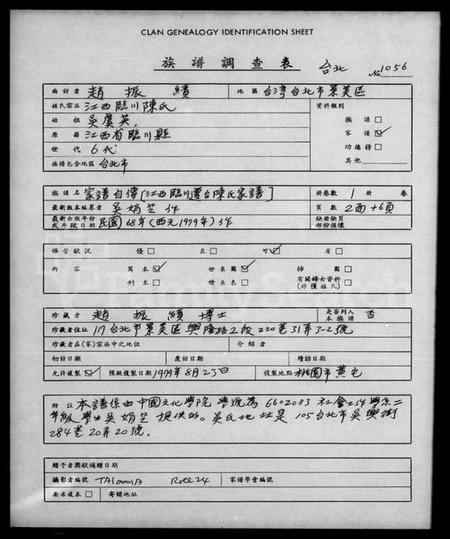 CLAN GENEALOGY IDENTIFICATION SHEET
族譜調查表 台北 No 1056
面訪者 趙振績 地區 台灣台北市景美區
姓氏宗派 江西臨川陳氏 資料類別
始祖 吳虞英 族譜 □
原籍 江西省臨川縣 家譜 ☑
世代 6代 功德榜 □
族譜包含地區 台北市 其他
族譜名 家譜自傳[江西臨川遷台陳氏家譜] 冊卷數 1 冊 卷
最新版本編纂者 吳娟芝 作 頁數 2面+6頁
最新出版年份或片段日期 民國68年(西元1979年)作 缺冊缺頁部份損壞
保管狀況 優 □ 良 □ 可 ☑ 劣 □
內容 寫本 ☑ 世系圖 ☑ 插圖 □
刊本 □ 世系表 □ 有關婦女資料(非僅姓氏) □
珍藏者 趙振績 博士 是否列入本族譜 否
珍藏者住址 117台北市景美區興隆路2段220巷31弄3-2號
珍藏者在(家)宗族中之地位 介紹者
初訪日期 度訪日期 續訪日期
允許複製 ☑ 預擬複製日期 1979年8月23日 複製地點 桃園市黃宅
附註 本譜係由中國文化學院 學號為6602083 社會工作學系二
年級 學生 吳娟芝 提供的。吳氏地址是 105台北市吳興街
284巷20弄20號。
贈予者獎狀頒贈日期
攝影者編號 TAIWAN Roll 24 家譜學會編號
要求複本 □ 寄贈地址